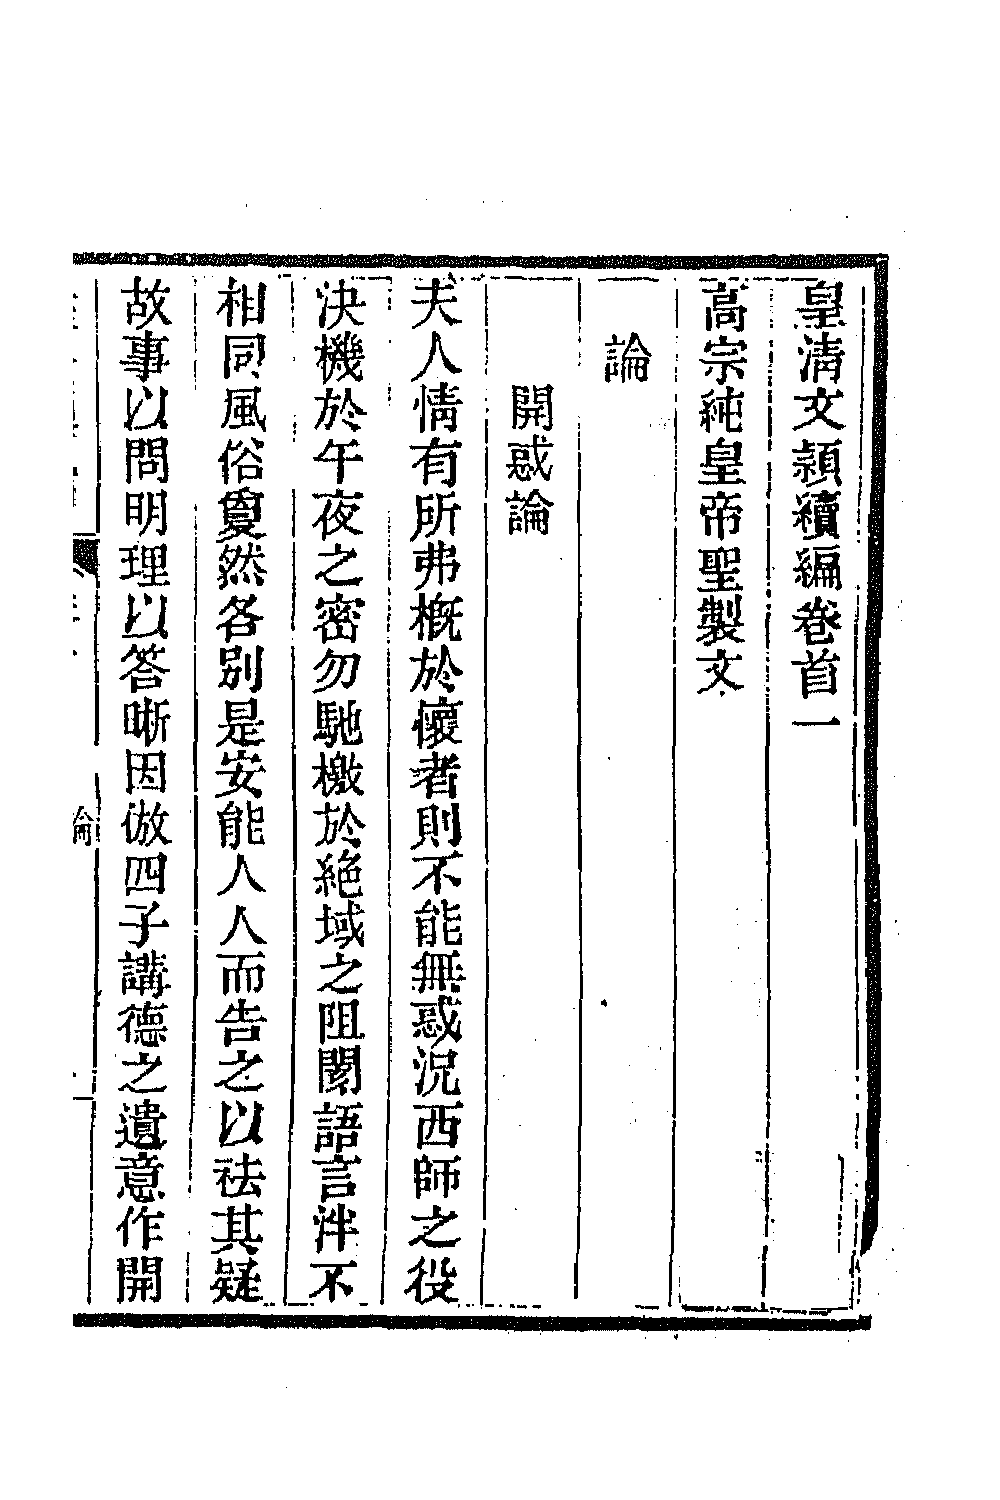 皇清文頴續編卷首一
高宗純皇帝聖製文
論
開惑論
夫人情有所弗概於懷者則不能無惑況西師之役
決機於午夜之密勿馳檄於絶域之阻閡語言泮不
相同風俗敻然各別是安能人人而告之以祛其疑
故事以問明理以答晰因倣四子講德之遺意作開
論